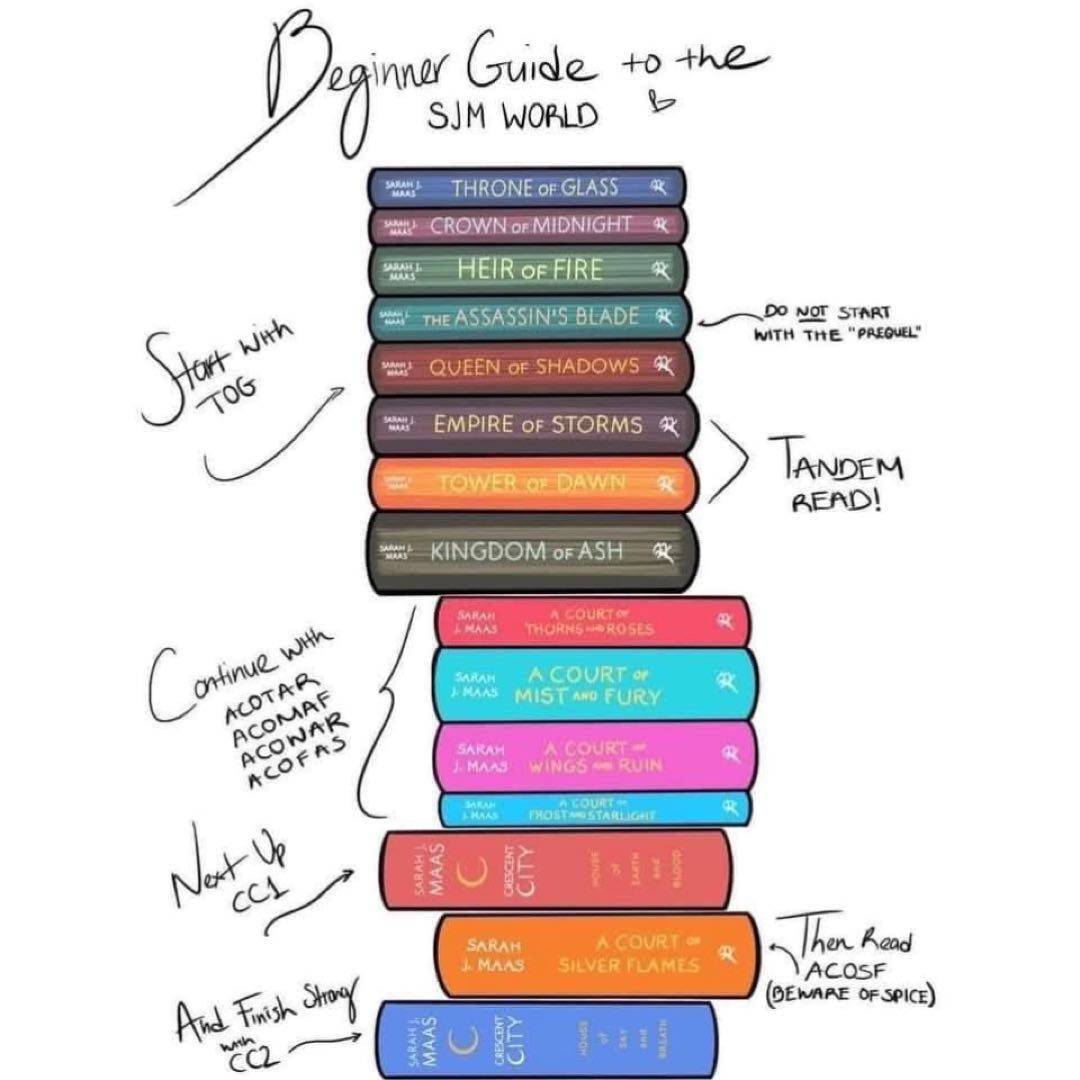 Beginner Guide to the
SJM WORLD
SARAH J.
MAAS
THRONE OF GLASS
SARAH J.
MAAS
CROWN OF MIDNIGHT
SARAH J.
MAAS
HEIR OF FIRE
SARAH J.
MAAS
THE ASSASSIN'S BLADE
DO NOT START
WITH THE "PREQUEL"
Start with
TOG
SARAH J.
MAAS
QUEEN OF SHADOWS
SARAH J.
MAAS
EMPIRE OF STORMS
SARAH J.
MAAS
TOWER OF DAWN
TANDEM
READ!
SARAH J.
MAAS
KINGDOM OF ASH
Continue with
ACOTAR
ACOMAF
ACOWAR
ACOFAS
SARAH
J. MAAS
A COURT OF
THORNS AND ROSES
SARAH
J. MAAS
A COURT OF
MIST AND FURY
SARAH
J. MAAS
A COURT OF
WINGS AND RUIN
SARAH
J. MAAS
A COURT OF
FROST AND STARLIGHT
Next Up
CC1
SARAH J.
MAAS
C
CRESCENT
CITY
HOUSE
OF
EARTH
AND
BLOOD
SARAH
J. MAAS
A COURT OF
SILVER FLAMES
Then Read
ACOSF
(BEWARE OF SPICE)
And Finish Strong
with
CC2
SARAH J.
MAAS
C
CRESCENT
CITY
HOUSE
OF
SKY
AND
BREATH